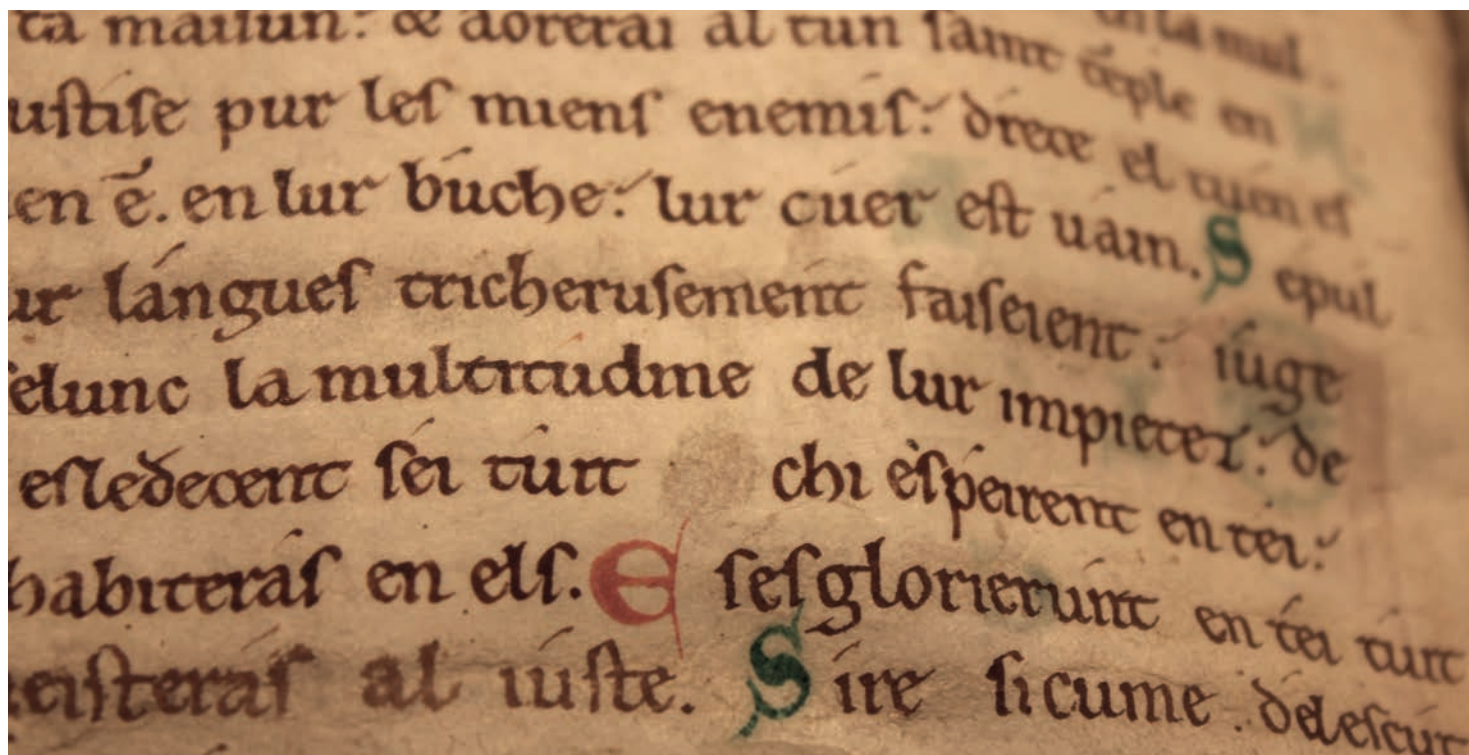 ta maisun: & aorerai al tun saint tēple en
ustise pur les miens enemis: drece el tuen es
en ē. en lur buche: lur cuer est uain. Sepul
ur langues tricherusement faiseient: iuge
selunc la multitudine de lur impietez: de
esledecent sei tuit chi espeirent en tei:
habiteras en els. E sesglorierunt en tei tuit
neisteras al iuste. Sire sicume delescut